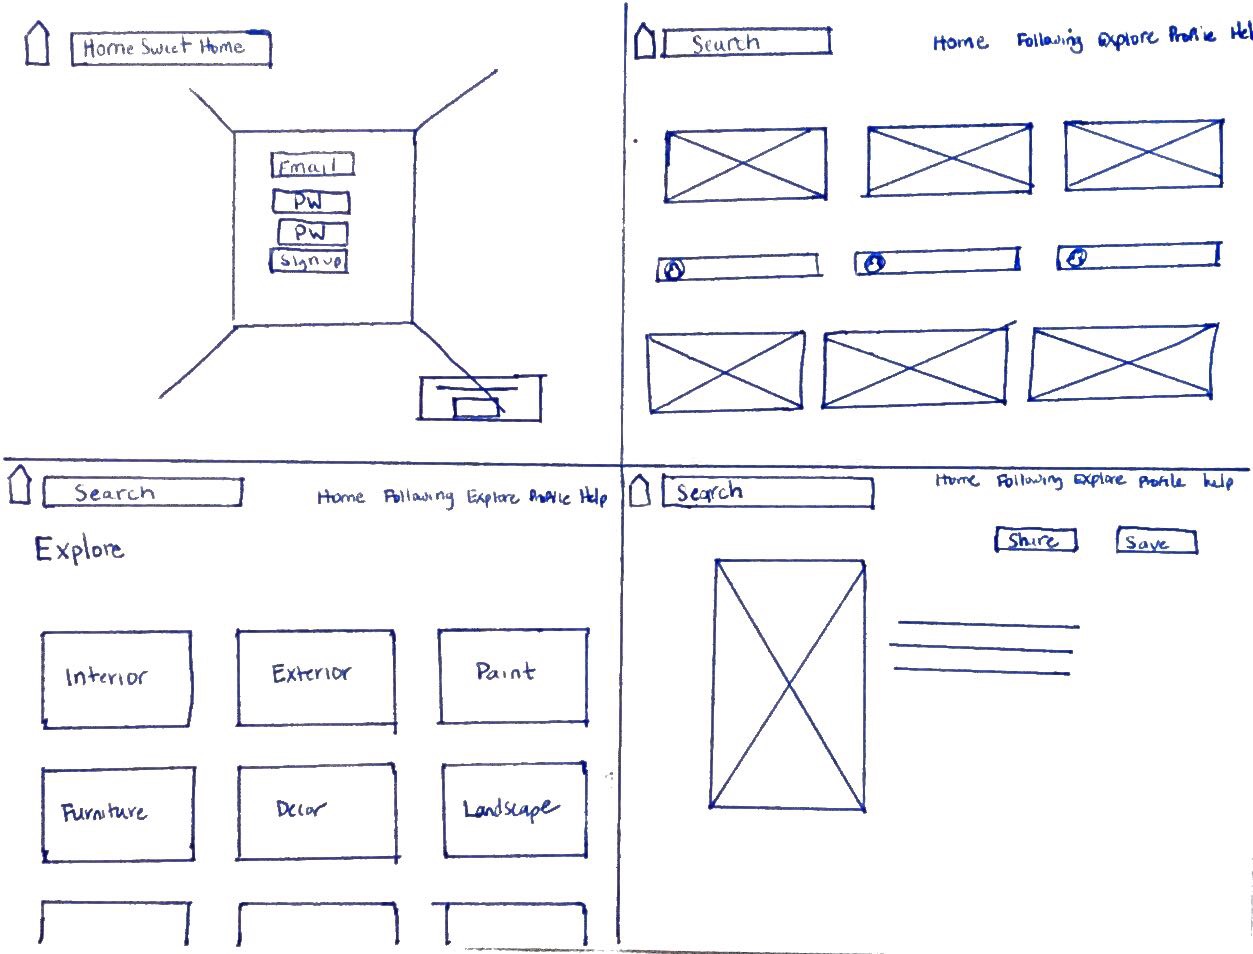 Home Sweet Home
Email
PW
PW
Signup
Search
Home Following Explore Profile Hel
Search
Home Following Explore Profile Help
Explore
Interior
Exterior
Paint
Furniture
Decor
Landscape
Search
Home Following Explore Profile help
Share
Save